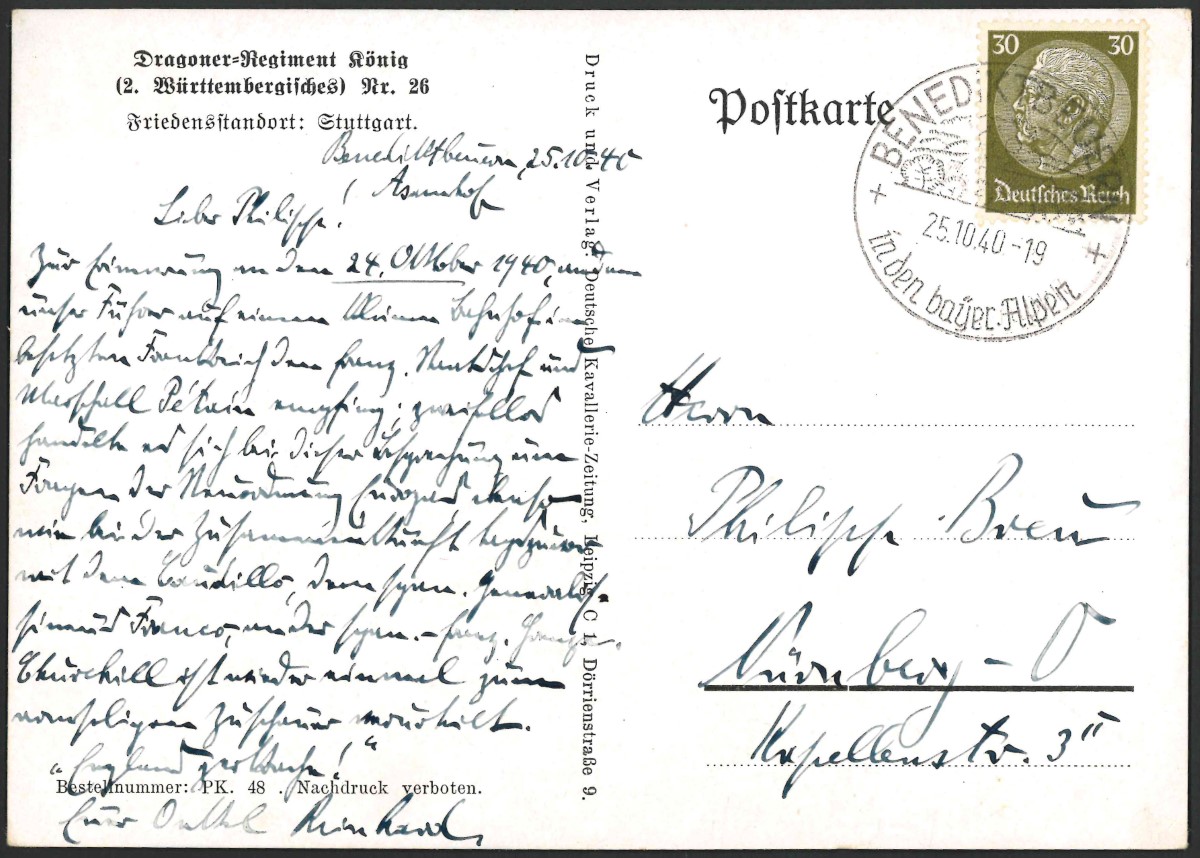 Dragoner-Regiment König
(2. Württembergisches) Nr. 26
Friedensstandort: Stuttgart.
Benediktbeuern, 25.10.40
Lieber Philipp!
Zur Erinnerung an den 24. Oktober 1940, an dem
unser Führer auf einem kleinen Bahnhof im
besetzten Frankreich den franz. Staatschef und
Marschall Pétain empfing; zweifellos
handelte es sich bei dieser Besprechung um
Fragen der Neuordnung Europas, ebenso
wie bei der Zusammenkunft tags zuvor
mit dem Caudillo, dem span. Generalis-
simus Franco, an der span.-franz. Grenze.
Churchill ist wieder einmal zum
Zuschauer verurteilt.
"England erwache!"
Bestellnummer: PK. 48 . Nachdruck verboten.
Euer Onkel Reinhard,
Druck und Verlag: Deutsche Kavallerie-Zeitung, Leipzig C 1, Dörrienstraße 9.
Postkarte
30 30
Deutsches Reich
BENEDIKTBEUERN
25.10.40-19
in den bayer. Alpen
Herrn
Philipp Breu
Nürnberg-O
Kapellenstr. 3"